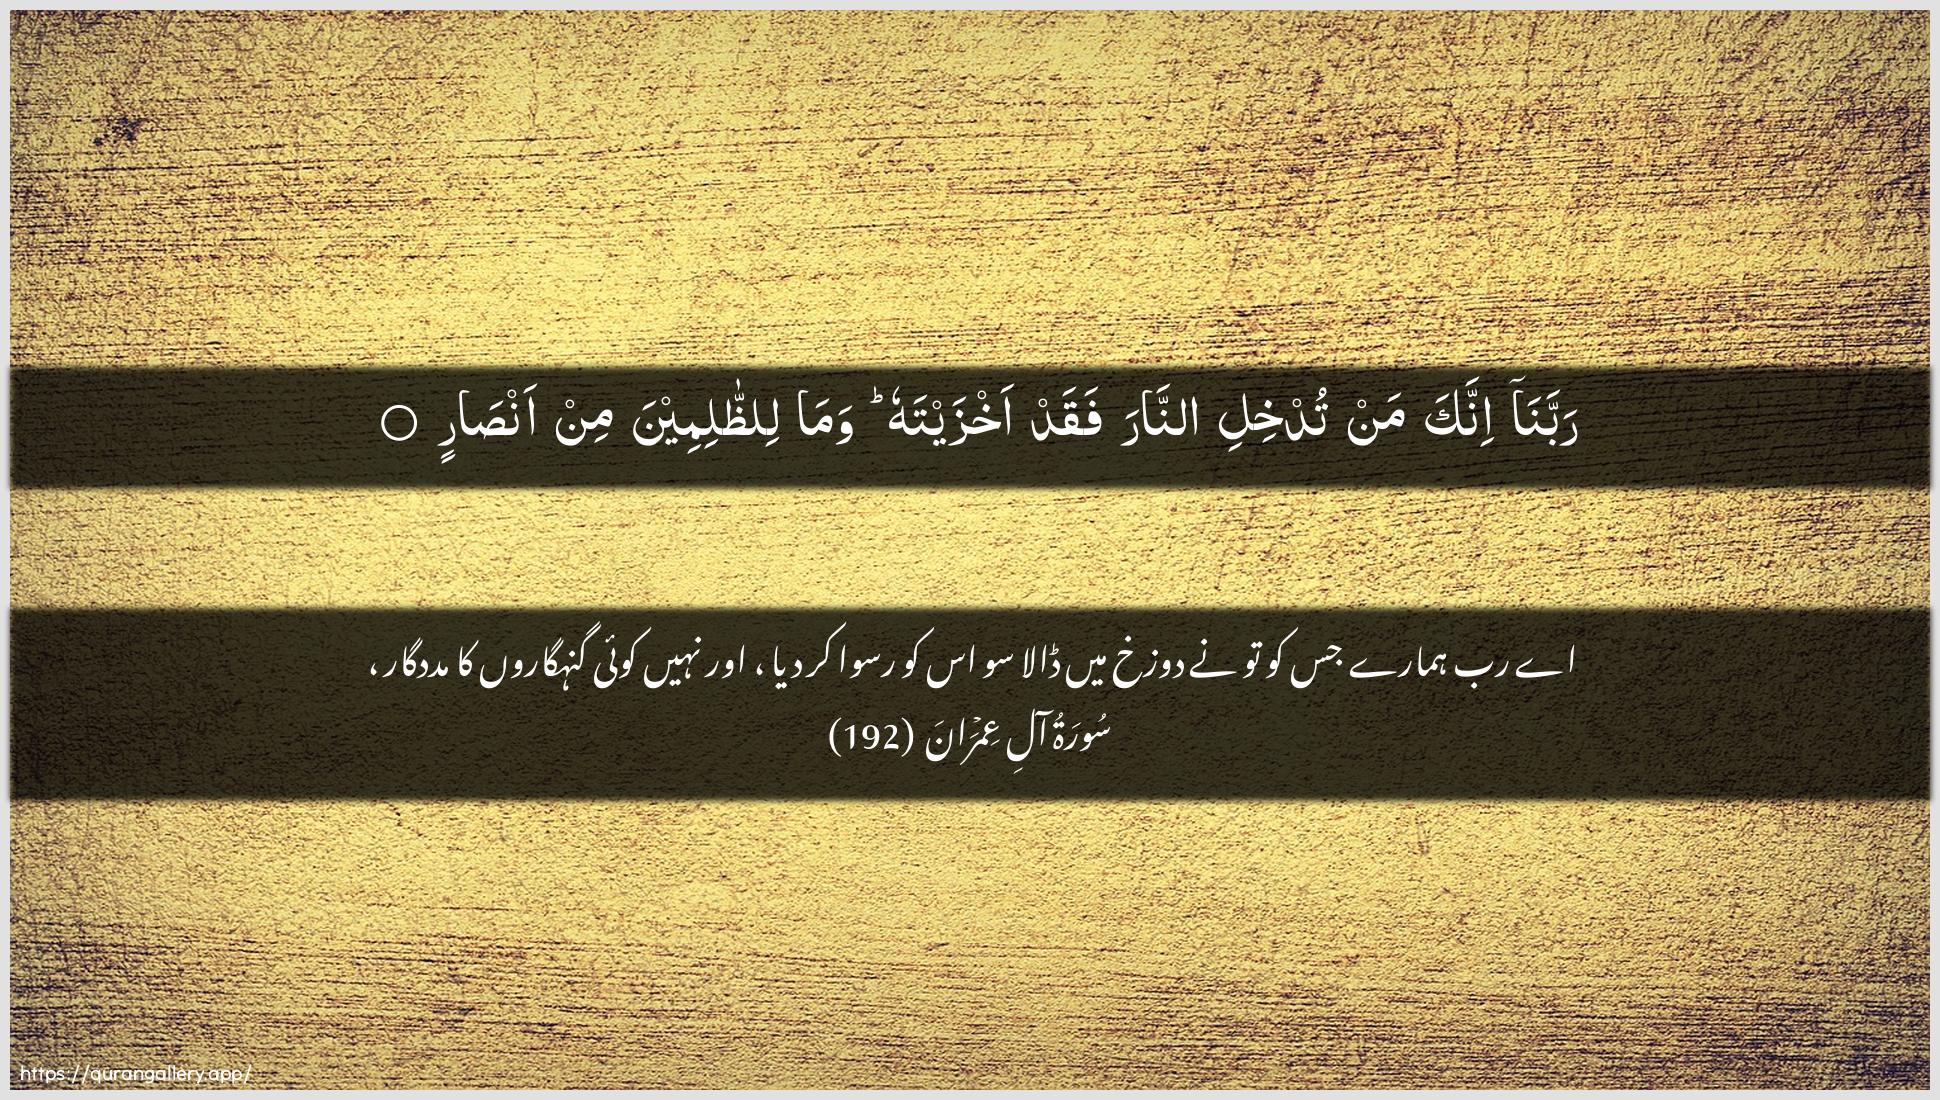 رَبَّنَاۤ اِنَّكَ مَنْ تُدْخِلِ النَّارَ فَقَدْ اَخْزَيْتَهٗ ؕ وَمَا لِلظّٰلِمِيْنَ مِنْ اَنْصَارٍ ○
اے رب ہمارے جس کو تو نے دوزخ میں ڈالا سو اس کو رسوا کر دیا ، اور نہیں کوئی گنہگاروں کا مددگار ،
سُورَةُ آلِ عِمْرَانَ (192)
https://qurangallery.app/